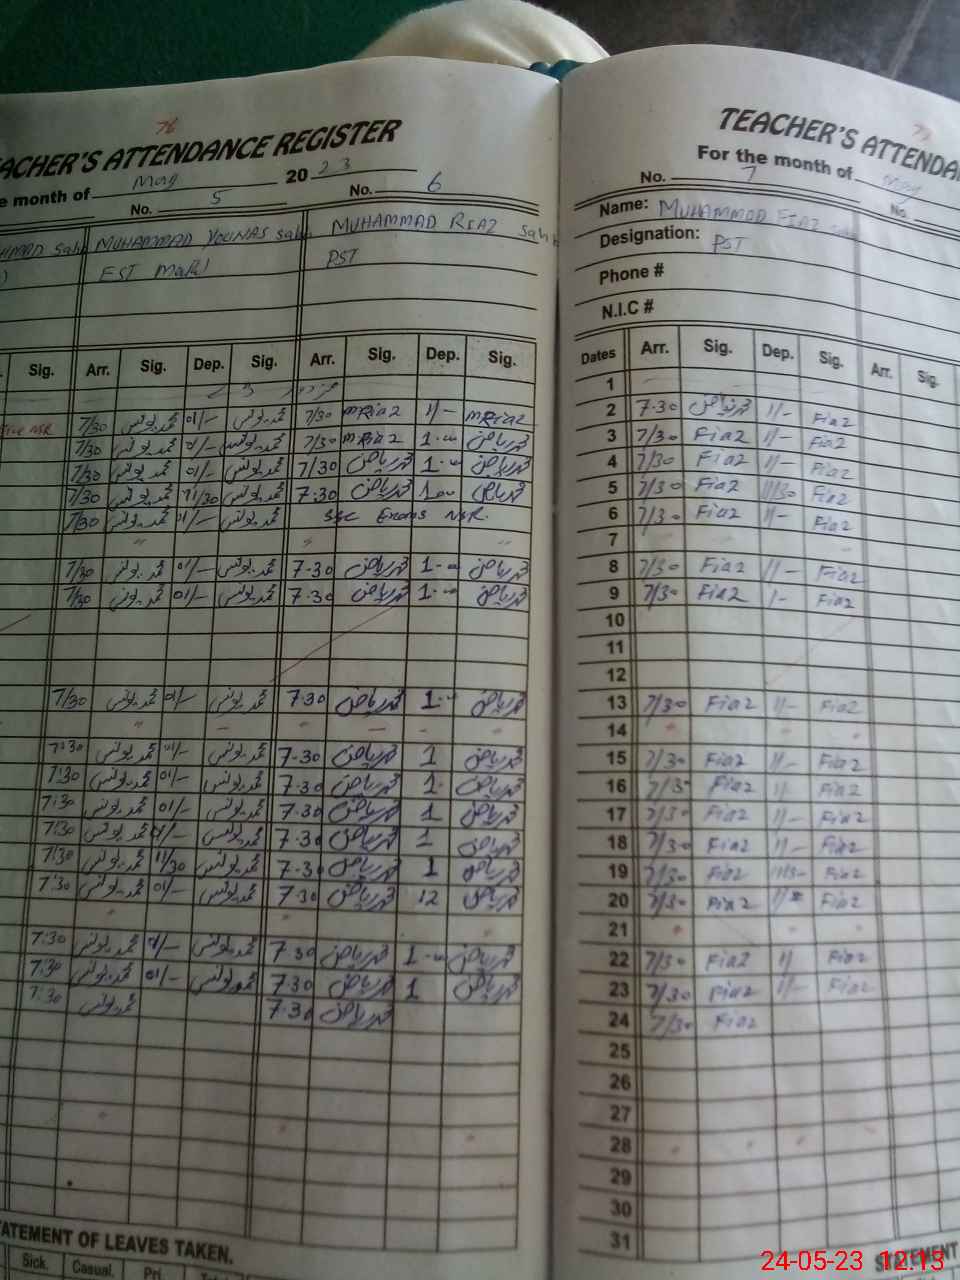 76
TEACHER'S ATTENDANCE REGISTER
month of May 2023
No. 5 No. 6
MUHAMMAD YOUNAS Sahib MUHAMMAD RIAZ Sahib
EST PST
Sig. Arr. Sig. Dep. Sig. Arr. Sig. Dep. Sig.
7/30 محمد یونس 01/- محمد یونس 7/30 MRiaz 1/- MRiaz
7/30 محمد یونس 01/- محمد یونس 7/30 MRiaz 1.00 محمد ریاض
7/30 محمد یونس 01/- محمد یونس 7/30 محمد ریاض 1.00 محمد ریاض
7/30 محمد یونس 11/30 محمد یونس 7.30 محمد ریاض 1.00 محمد ریاض
7/30 محمد یونس 01/- محمد یونس SSC Exams
7/30 محمد یونس 01/- محمد یونس 7.30 محمد ریاض 1.00 محمد ریاض
7/30 محمد یونس 01/- محمد یونس 7.30 محمد ریاض 1.00 محمد ریاض
7/30 محمد یونس 01/- محمد یونس 7.30 محمد ریاض 1.00 محمد ریاض
7:30 محمد یونس 01/- محمد یونس 7.30 محمد ریاض 1 محمد ریاض
7:30 محمد یونس 01/- محمد یونس 7.30 محمد ریاض 1. محمد ریاض
7:30 محمد یونس 01/- محمد یونس 7.30 محمد ریاض 1 محمد ریاض
7:30 محمد یونس 01/- محمد یونس 7.30 محمد ریاض 1 محمد ریاض
7:30 محمد یونس 11/30 محمد یونس 7.30 محمد ریاض 1 محمد ریاض
7:30 محمد یونس 01/- محمد یونس 7.30 محمد ریاض 12 محمد ریاض
7:30 محمد یونس 01/- محمد یونس 7.30 محمد ریاض 1.00 محمد ریاض
7:30 محمد یونس 01/- محمد یونس 7.30 محمد ریاض 1 محمد ریاض
7:30 محمد یونس 7.30 محمد ریاض
STATEMENT OF LEAVES TAKEN.
Sick. Casual. Pri.
TEACHER'S ATTENDA
For the month of May
No. 7 No.
Name: MUHAMMAD FIAZ
Designation: PST
Phone #
N.I.C #
Dates Arr. Sig. Dep. Sig. Arr. Sig.
1
2 7.30 1/- Fiaz
3 7/30 Fiaz 1/- Fiaz
4 7/30 Fiaz 1/- Fiaz
5 7/30 Fiaz 11/30 Fiaz
6 7/30 Fiaz 1/- Fiaz
7
8 7/30 Fiaz 1/- Fiaz
9 7/30 Fiaz 1- Fiaz
10
11
12
13 7/30 Fiaz 1/- Fiaz
14
15 7/30 Fiaz 1/- Fiaz
16 7/30 Fiaz 1/- Fiaz
17 7/30 Fiaz 1/- Fiaz
18 7/30 Fiaz 1/- Fiaz
19 7/30 Fiaz Fiaz
20 7/30 Fiaz Fiaz
21
22 7/30 Fiaz 1/ Fiaz
23 7/30 Fiaz 1/- Fiaz
24 7/30 Fiaz
25
26
27
28
29
30
31
STATEMENT
24-05-23 12:13